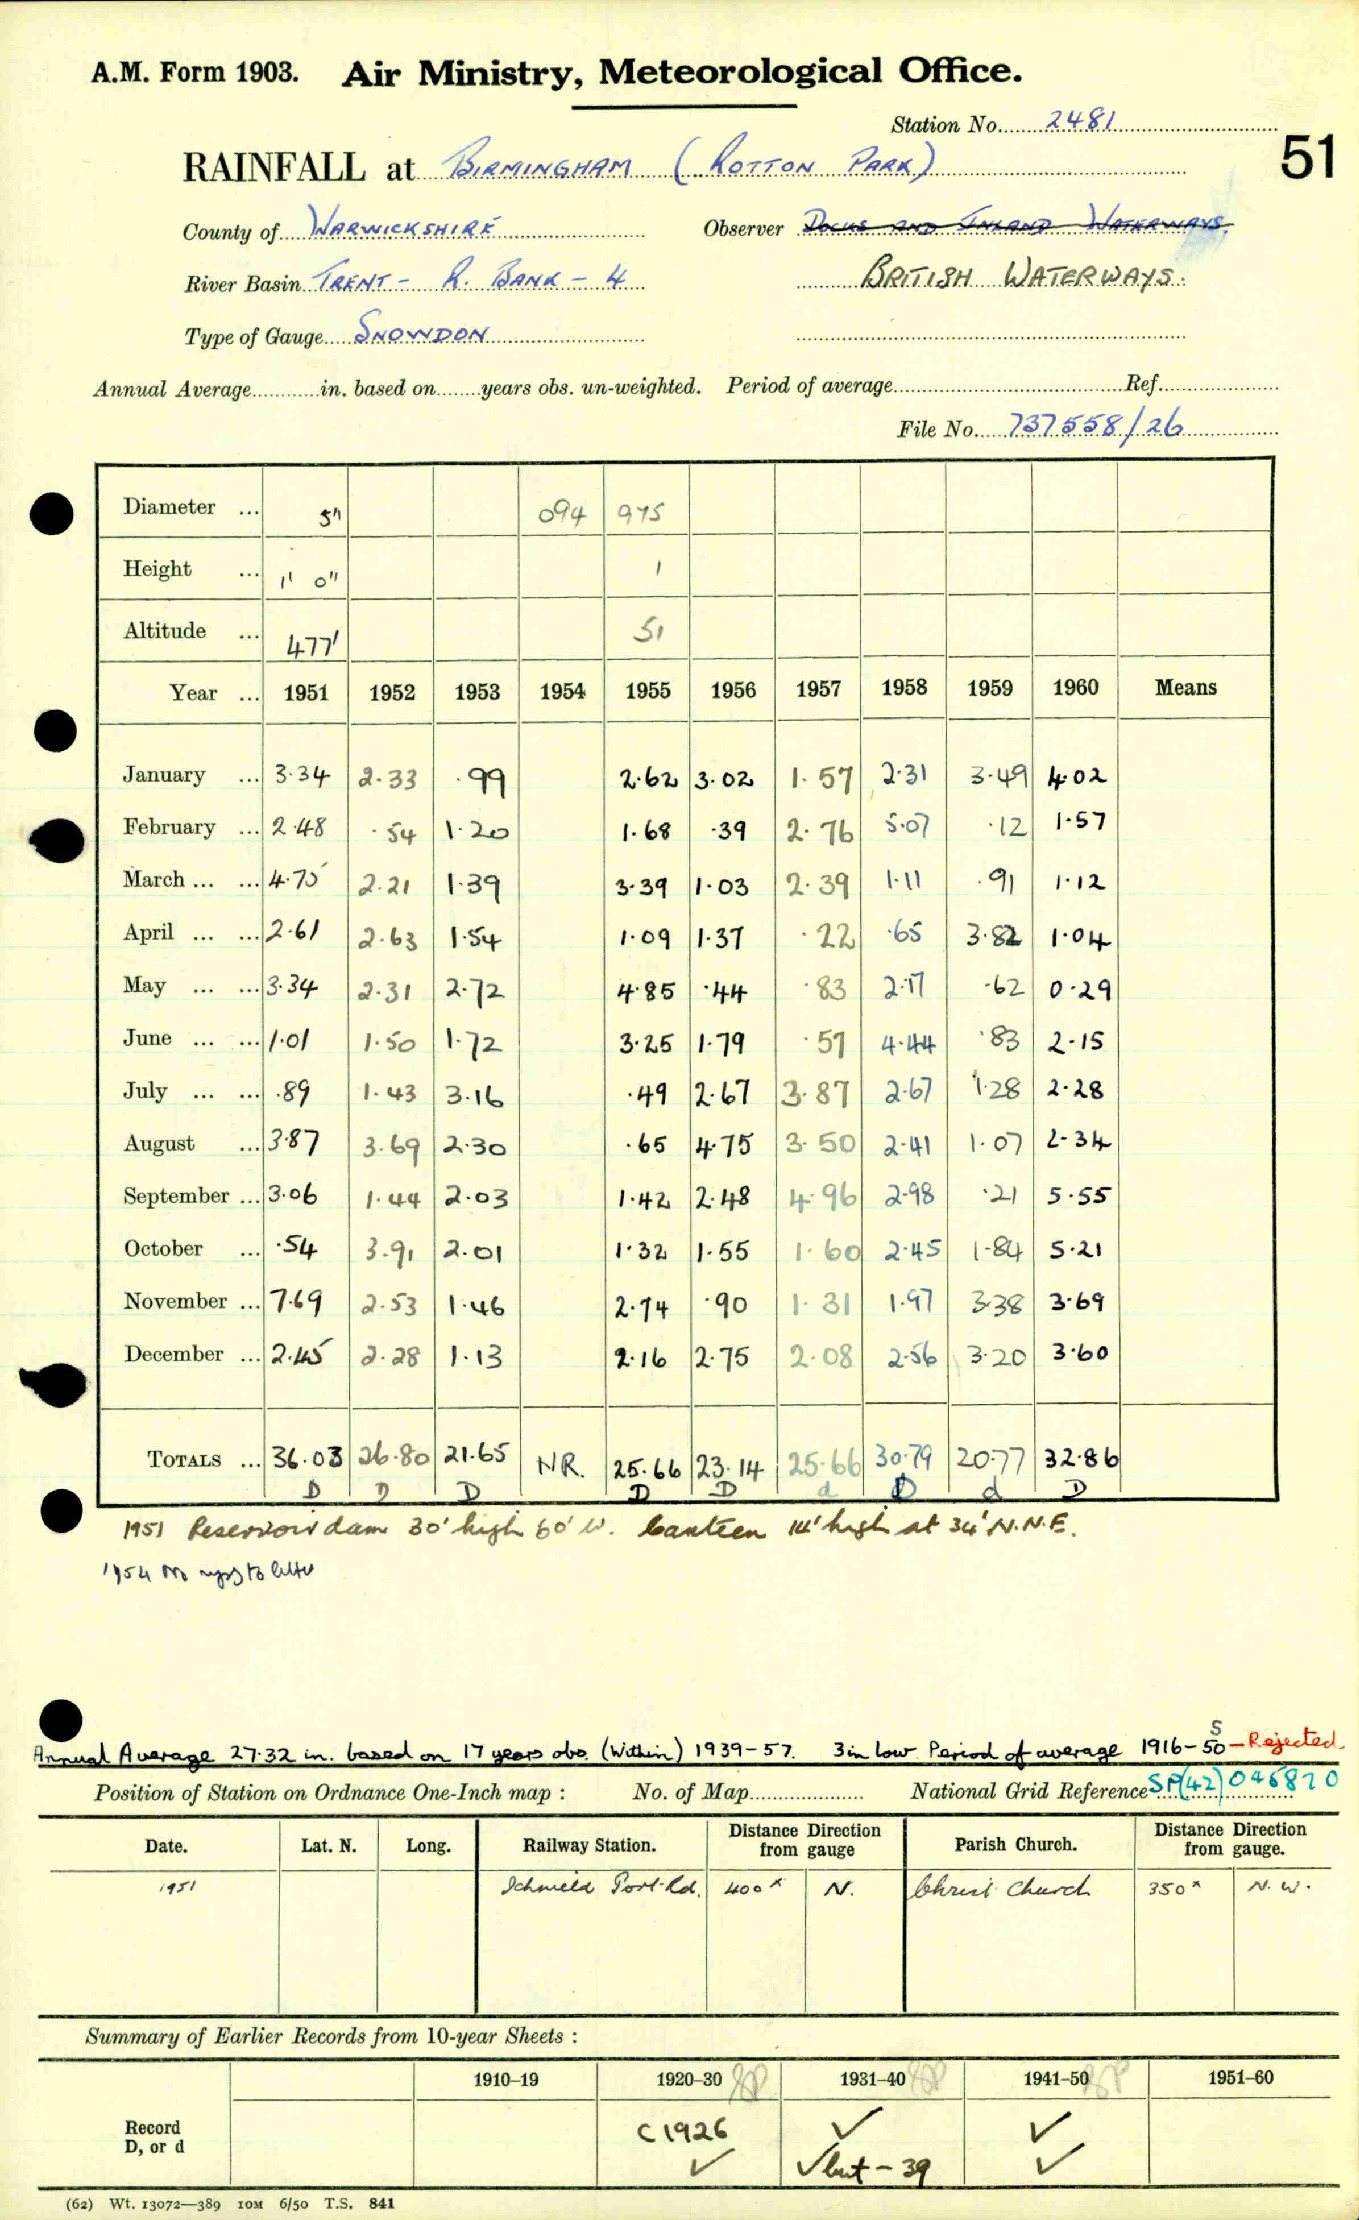 A.M. Form 1903. Air Ministry, Meteorological Office.
Station No. 2481
51
RAINFALL at BIRMINGHAM (ROTTON PARK)
County of WARWICKSHIRE Observer DOCKS AND INLAND WATERWAYS.
River Basin TRENT - R. BANK - 4 BRITISH WATERWAYS.
Type of Gauge SNOWDON
Annual Average in. based on years obs. un-weighted. Period of average Ref.
File No. 737558/26
Diameter ... 5" 094 975
Height ... 1' 0" 1
Altitude ... 477' 51
Year ... 1951 1952 1953 1954 1955 1956 1957 1958 1959 1960 Means
January ... 3.34 2.33 .99 2.62 3.02 1.57 2.31 3.49 4.02
February ... 2.48 .54 1.20 1.68 .39 2.76 5.07 .12 1.57
March ... ... 4.75 2.21 1.39 3.39 1.03 2.39 1.11 .91 1.12
April ... ... 2.61 2.63 1.54 1.09 1.37 .22 .65 3.82 1.04
May ... ... 3.34 2.31 2.72 4.85 .44 .83 2.17 .62 0.29
June ... ... 1.01 1.50 1.72 3.25 1.79 .57 4.44 .83 2.15
July ... ... .89 1.43 3.16 .49 2.67 3.87 2.67 1.28 2.28
August ... 3.87 3.69 2.30 .65 4.75 3.50 2.41 1.07 2.34
September ... 3.06 1.44 2.03 1.42 2.48 4.96 2.98 .21 5.55
October ... .54 3.91 2.01 1.32 1.55 1.60 2.45 1.84 5.21
November ... 7.69 2.53 1.46 2.74 .90 1.31 1.97 3.38 3.69
December ... 2.45 2.28 1.13 2.16 2.75 2.08 2.56 3.20 3.60
TOTALS ... 36.03 26.80 21.65 NR. 25.66 23.14 25.66 30.79 20.77 32.86
D D D D D d D d D
1951 Reservoir dam 30' high 60' W. Canteen 14' high at 34' N.N.E.
1954 No reply to letter
Annual Average 27.32 in. based on 17 years obs. (within) 1939-57. 3 in low Period of average 1916-50 - Rejected.
Position of Station on Ordnance One-Inch map : No. of Map National Grid Reference SP(42) 045870
Date. Lat. N. Long. Railway Station. Distance Direction from gauge Parish Church. Distance Direction from gauge.
1951 Icknield Port Rd. 400x N. Christ Church 350x N.W.
Summary of Earlier Records from 10-year Sheets :
1910–19 1920–30 1931–40 1941–50 1951–60
Record C1926 ✓ ✓
D, or d ✓ ✓ but - 39 ✓
(62) Wt. 13072—389 10M 6/50 T.S. 841